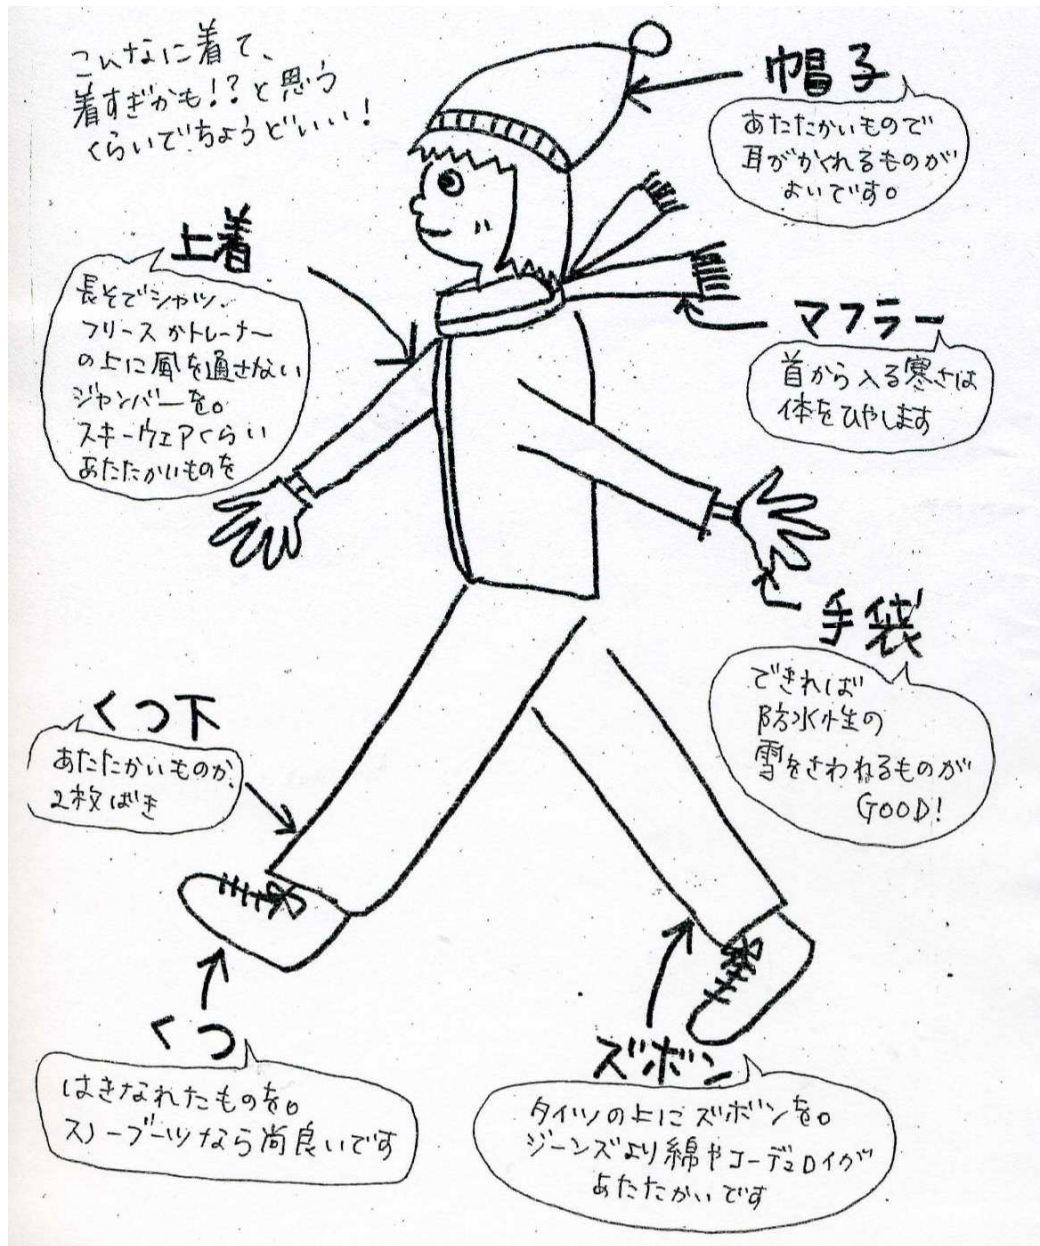 こんなに着て、
着すぎかも!?と思う
くらいでちょうどいい!
帽子
あたたかいもので
耳がかくれるものが
よいです。
上着
長そでシャツ、
フリースかトレーナー
の上に風を通さない
ジャンバーを。
スキーウェアくらい
あたたかいものを
マフラー
首から入る寒さは
体をひやします
手袋
できれば
防水性の
雪をさわれるものが
GOOD!
くつ下
あたたかいものか、
2枚ばき
くつ
はきなれたものを。
スノーブーツなら尚良いです
ズボン
タイツの上にズボンを。
ジーンズより綿やコーデュロイが
あたたかいです